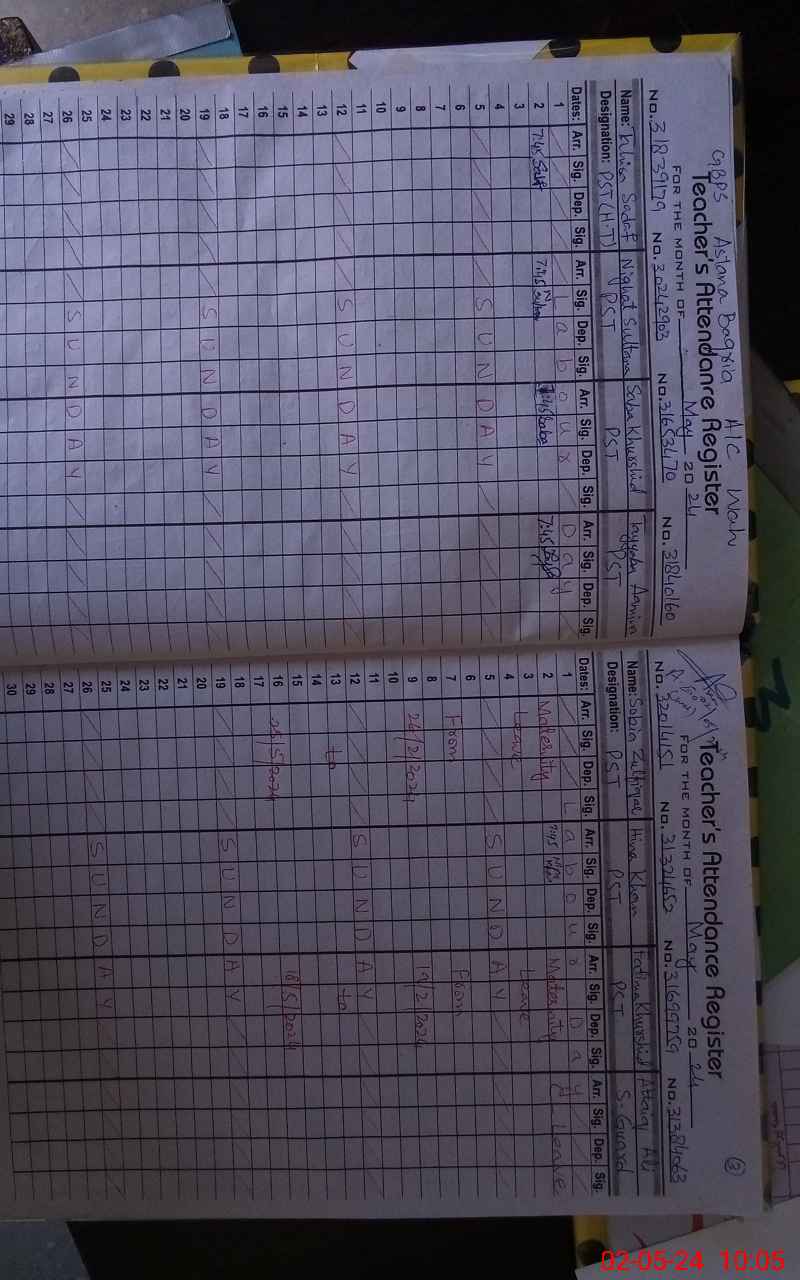 GBPS Astana Baqria A/C Wah
Teacher's Attendance Register
FOR THE MONTH OF May 20 24
No. 31839179 No. 30242903 No. 31653470 No. 31840160
Name: Sadaf Nighat Sultana Saba Khurshid Tayyaba Aamir
Designation: PST (H.T) PST PST PST
Dates: Arr. Sig. Dep. Sig. Arr. Sig. Dep. Sig. Arr. Sig. Dep. Sig. Arr. Sig. Dep. Sig.
1 Labour Day
2 7:45 Sadaf 7:45 7:45 Saba 7:45
3
4
5 SUNDAY
6
7
8
9
10
11
12 SUNDAY
13
14
15
16
17
18
19 SUNDAY
20
21
22
23
24
25
26 SUNDAY
27
28
29
Teacher's Attendance Register
FOR THE MONTH OF May 20 24
(2)
No. 32014151 No. 31324652 No. 31699759 No. 31384063
Name: Sobia Zulfiqar Hina Khan Fatima Khurshid Ali
Designation: PST PST PST S. Guard
Dates: Arr. Sig. Dep. Sig. Arr. Sig. Dep. Sig. Arr. Sig. Dep. Sig. Arr. Sig. Dep. Sig.
1 Labour Day
2 Maternity 7:45 Maternity Leave
3 Leave Leave
4
5 SUNDAY
6
7 From From
8
9 24/2/2024 19/2/2024
10
11
12 SUNDAY
13 to to
14
15
16 25/5/2024 18/5/2024
17
18
19 SUNDAY
20
21
22
23
24
25
26 SUNDAY
27
28
29
30
02-05-24 10:05